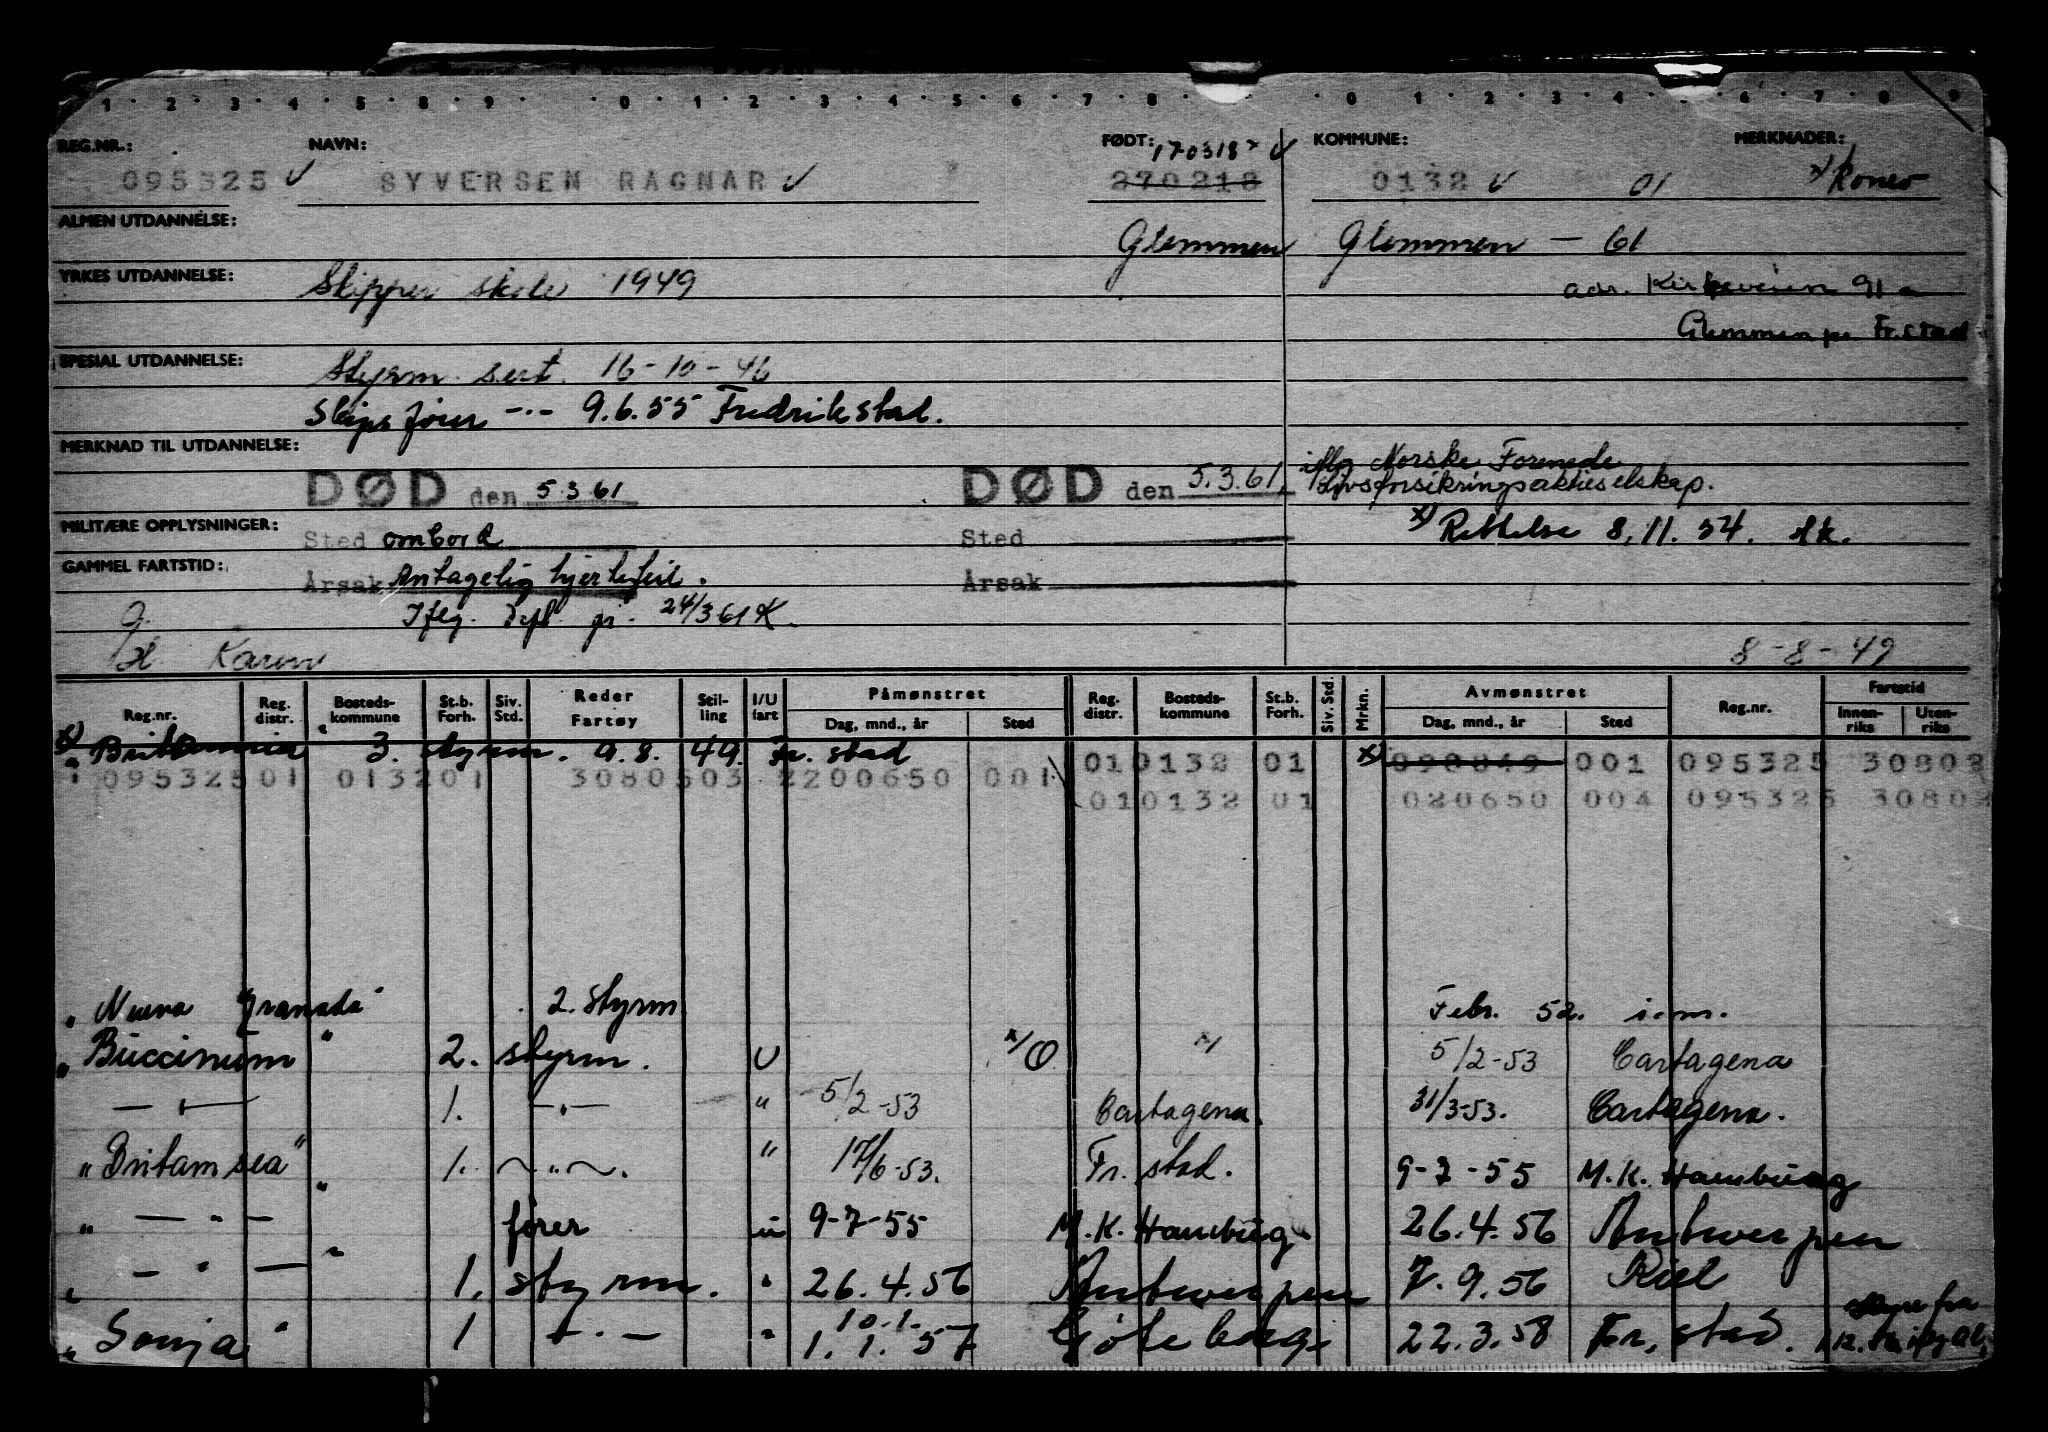 1 2 3 4 5 8 9 0 1 2 3 4 5 6 7 8 0 1 2 3 4 5 6 7 8 9
REG.NR.: NAVN: FØDT: 170318 x KOMMUNE: MERKNADER:
095325 SYVERSEN RAGNAR 270218 0132 01
ALMEN UTDANNELSE: Glemmen Glemmen - 61
YRKES UTDANNELSE: Skipper skole 1949 adr. Kirkeveien 91 a
Glemmen pr. Fr.stad
SPESIAL UTDANNELSE: Styrm. sert. 16-10-46
Skips fører -"- 9.6.55 Fredrikstad.
MERKNAD TIL UTDANNELSE: iflg Norske Forenede
DØD den 5.3.61 DØD den 5.3.61. Livsforsikringsaktieselskap.
MILITÆRE OPPLYSNINGER: Sted ombord Sted x) Rettelse 8.11.54.
GAMMEL FARTSTID: Årsak Antagelig hjertefeil. Årsak
Iflg. 24/3 61 K.
Karen 8-8-49
Reg.nr. Reg. distr. Bosteds-kommune St.b. Forh. Siv. Std. Reder Fartøy Stil-ling I/U fart Påmønstret Dag, mnd., år Sted Reg. distr. Bosteds-kommune St.b. Forh. Siv. Std. Mrkn. Avmønstret Dag, mnd., år Sted Reg.nr. Fartstid Innen-riks Uten-riks
x) "Britannia" 3. styrm. 9.8.49. Fr.stad 010132 01 x) 090849 001 095325 30808
095325 01 013201 3080503 2200650 001 010132 01 020650 004 095325 30802
"Nueva Granada" 2. styrm Febr. 52.
"Buccinum" 2. styrm. U 5/2-53 Cartagena
-"- 1. -"- " 5/2-53 Cartagena. 31/3-53. Cartagena.
"Britamsea" 1. -"-. " 17/6-53. Fr.stad. 9-7-55 M.K. Hamburg
" -"- " fører u 9-7-55 M.K. Hamburg 26.4.56 Antwerpen
" -"- " 1. styrm. " 26.4.56 Antwerpen 7.9.56 Kiel
"Sonja" 1 -"- " 10.1. 1.1.57 Göteborg 22.3.58 Fr.stad.